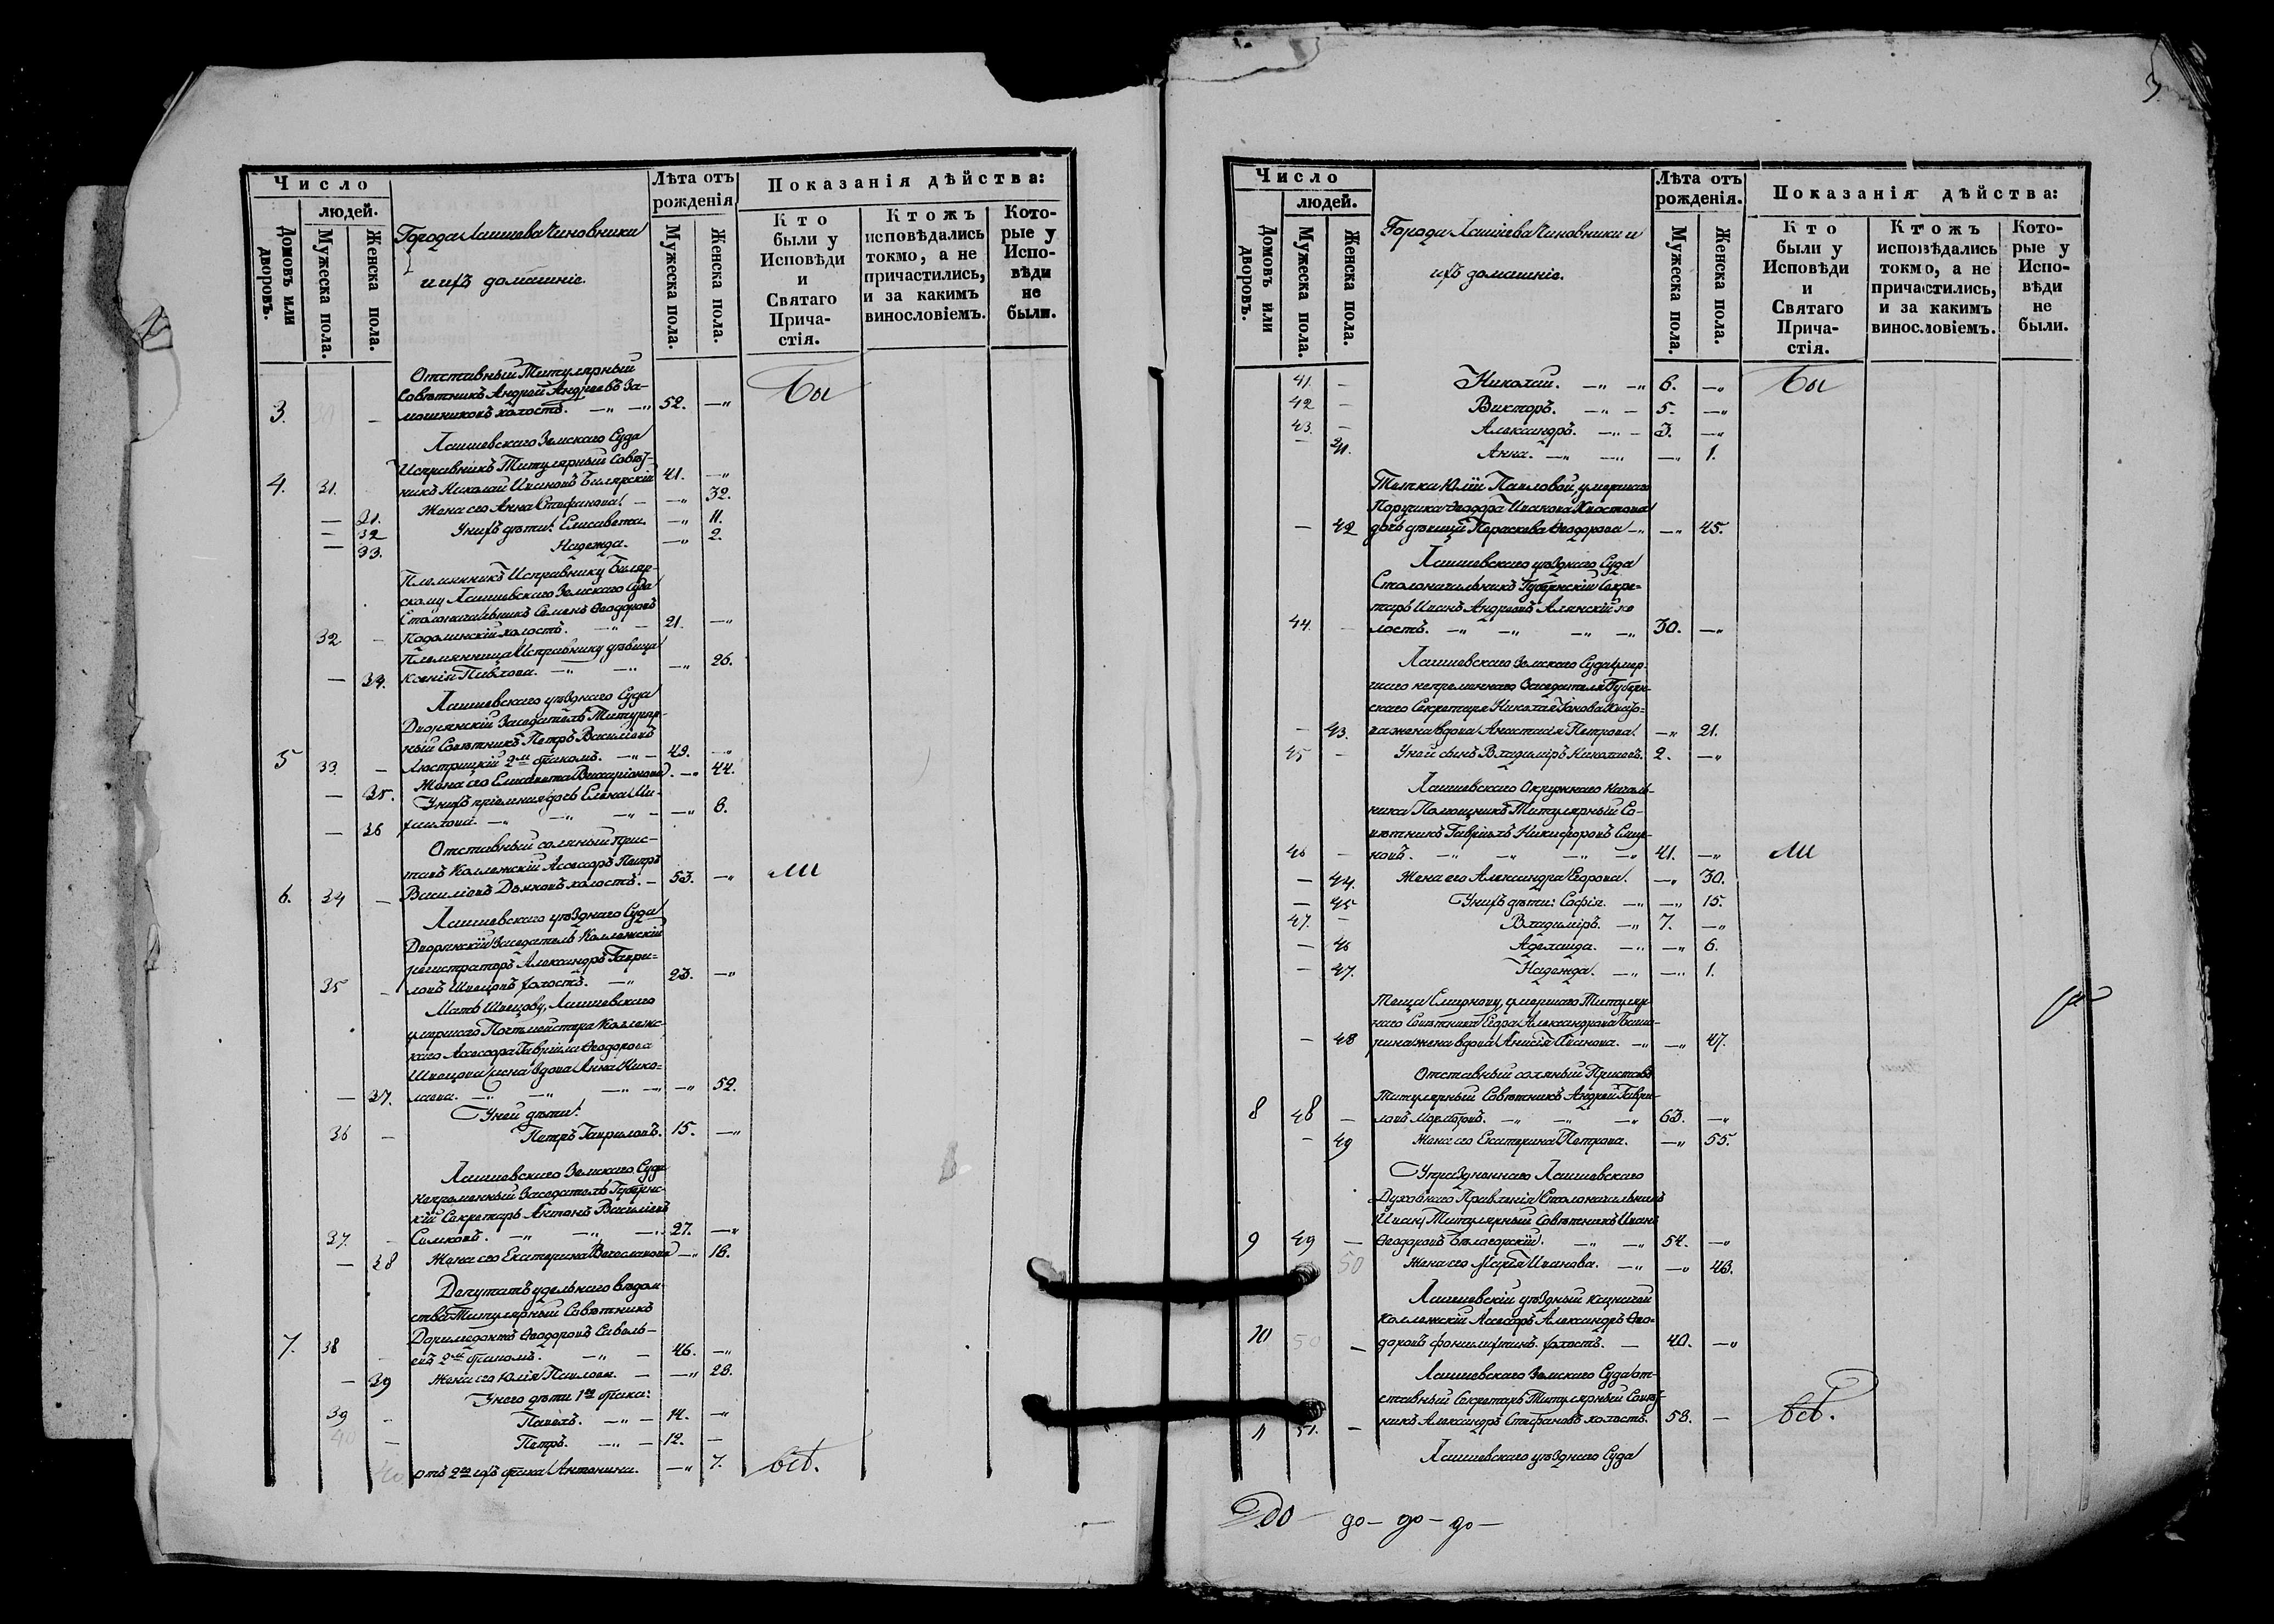 Число
людей.
Домовъ или дворовъ.
Мужеска пола.
Женска пола.
Города Лаишева Чиновники
и ихъ домашніе.
Лѣта отъ рожденія
Мужеска пола.
Женска пола.
Показанія дѣйства:
Кто были у Исповѣди и Святаго Причастія.
Ктожъ исповѣдались токмо, а не причастились, и за какимъ винословіемъ.
Которые у Исповѣди не были.
Отставный Титулярный
Совѣтникъ Андрей Андреевъ За-
3. — мошниковъ холостъ. —„ —„ 52. —„ Бы
Лаишевскаго Земскаго Суда
Исправникъ Титулярный Совѣт-
4. 31. никъ Николай Ивановъ Билярскій 41. —„
Жена его Анна Стефанова. — —„ 32.
— 31. У нихъ дѣти: Елисавета. —„ 11.
— 32 Надежда. —„ 2.
— 33.
Племянникъ Исправнику Биляр-
скому Лаишевскаго Земскаго Суда
Столоначальникъ Семенъ Ѳеодоровъ
32 — Подолинскій холостъ. —„ — 21. —„
Племянница Исправнику дѣвица
— 34. Ксенія Павлова. —„ —„ —„ 26.
Лаишевскаго уѣзднаго Суда
Дворянскій Засѣдатель Титуляр-
ный Совѣтникъ Петръ Васильевъ
5 33. — Люстрицкій 2мъ бракомъ. —„ — 49. —„
— 35. Жена его Елисавета Виссаріонова. —„ 44.
У нихъ пріемная дочь Елена Ми-
— 36 хаилова. —„ —„ —„ — —„ 8.
Отставный соляный Прис-
тавъ Коллежскій Ассесоръ Петръ
6. 34 — Васильевъ Дьяковъ холостъ. — 53. —„ ли
Лаишевскаго уѣзднаго Суда
Дворянскій Засѣдатель Коллежскій
регистраторъ Александръ Гаври-
35 — ловъ Швецовъ холостъ. —„ 23. —„
Мать Швецову, Лаишевскаго
умершаго Почтмейстера Коллежс-
каго Ассесора Гавріила Ѳеодорова
Швецова жена вдова Анна Нико-
— 37. лаева. —„ —„ —„ —„ —„ 52.
У ней дѣти:
36 — Петръ Гавриловъ. 15. —„
Лаишевскаго Земскаго Суда
непременный Засѣдатель Губернс-
кій Секретарь Антонъ Васильевъ
37. — Симковъ. —„ —„ —„ 27. —„
— 38 Жена его Екатерина Вячеславова —„ 16.
Депутатъ удельнаго ведом-
ства Титулярный Совѣтникъ
Доримедонтъ Ѳеодоровъ Савель-
7. 38 — евъ 2мъ бракомъ. —„ — 46. —„
— 39 Жена его Юлія Павлова. — —„ 28.
У него дѣти 1го брака:
39 — Павелъ. —„ — 14. —„
40 — Петръ. —„ — 12. —
40 отъ 2го ихъ брака Антонина. —„ 7. всѣ.
3
Число
людей.
Домовъ или дворовъ.
Мужеска пола.
Женска пола.
Города Лаишева Чиновники и
ихъ домашніе.
Лѣта отъ рожденія.
Мужеска пола.
Женска пола.
Показанія дѣйства:
Кто были у Исповѣди и Святаго Причастія.
Ктожъ исповѣдались токмо, а не причастились, и за какимъ винословіемъ.
Которые у Исповѣди не были.
41. — Николай. —„ —„ 6. —„ Бы
42 — Викторъ. —„ — 5. —„
43. — Александръ. —„ — 3. —„
— 41. Анна. —„ —„ —„ 1.
Тетка Юліи Павловой, умершаго
Порутчика Ѳеодора Иванова
— 42 дочь дѣвица Параскева Ѳеодорова —„ —„ 45.
Лаишевскаго уѣзднаго Суда
Столоначальникъ Губернскій Секре-
тарь Иванъ Андреевъ Алянскій хо
44. — лостъ. —„ —„ —„ —„ 30. —„
Лаишевскаго Земскаго Суда умер-
шаго непременнаго Засѣдателя Губерн-
скаго Секретаря Николая
— 43. ва жена вдова Анастасія Петрова. —„ 21.
45 — У ней сынъ Владиміръ Николаевъ. 2. —„
Лаишевскаго Окружнаго Началь-
ника Помощникъ Титулярный Со-
вѣтникъ Гавріилъ Никифоровъ Смир-
46 — новъ. —„ —„ —„ —„ 41. —„ ли
— 44. Жена его Александра Егорова. —„ 30.
— 45 У нихъ дѣти: Софія. —„ —„ 15.
47. — Владиміръ. —„ 7. —„
— 46 Аделаида. —„ —„ 6.
— 47. Надежда. —„ —„ 1.
Теща Смирнову, умершаго Титуляр-
наго Совѣтника Егора Александрова
— 48 рина жена вдова Анисія Иванова. —„ —„ 47.
Отставный соляный Приставъ
Титулярный Совѣтникъ Андрей Гаври-
8 48 — ловъ —„ —„ —„ 63. —„
— 49 Жена его Екатерина Петрова. —„ 55.
Упраздненнаго Лаишевскаго
Духовнаго Правленія Столоначальникъ
Титулярный Совѣтникъ Иванъ
9 49 — Ѳеодоровъ Бѣлогорскій. —„ —„ 54. —„
50 Жена его Марія Иванова. —„ —„ 43.
Лаишевскій уѣздный казначей
Коллежскій Ассесоръ Александръ Ѳео-
10 50 — доровъ холостъ. — 40. —„
Лаишевскаго Земскаго Суда от-
ставный Секретарь Титулярный Совѣт-
11 51. — никъ Александръ Стефановъ холостъ. 58. — всѣ.
Лаишевскаго уѣзднаго Суда
до — до — до —